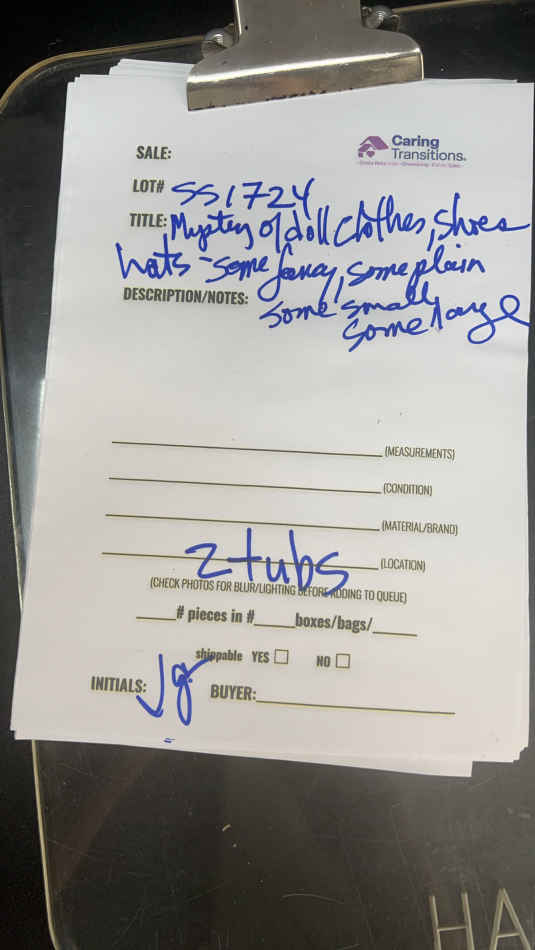 SALE:
Caring
Transitions.
LOT# SS1724
TITLE: Mystery of doll clothes, shoes
hats - some fancy, some plain
DESCRIPTION/NOTES: some small,
some large
(MEASUREMENTS)
(CONDITION)
(MATERIAL/BRAND)
2 tubs (LOCATION)
(CHECK PHOTOS FOR BLUR/LIGHTING BEFORE ADDING TO QUEUE)
# pieces in # boxes/bags/
shippable YES NO
INITIALS: Jg BUYER:
HA